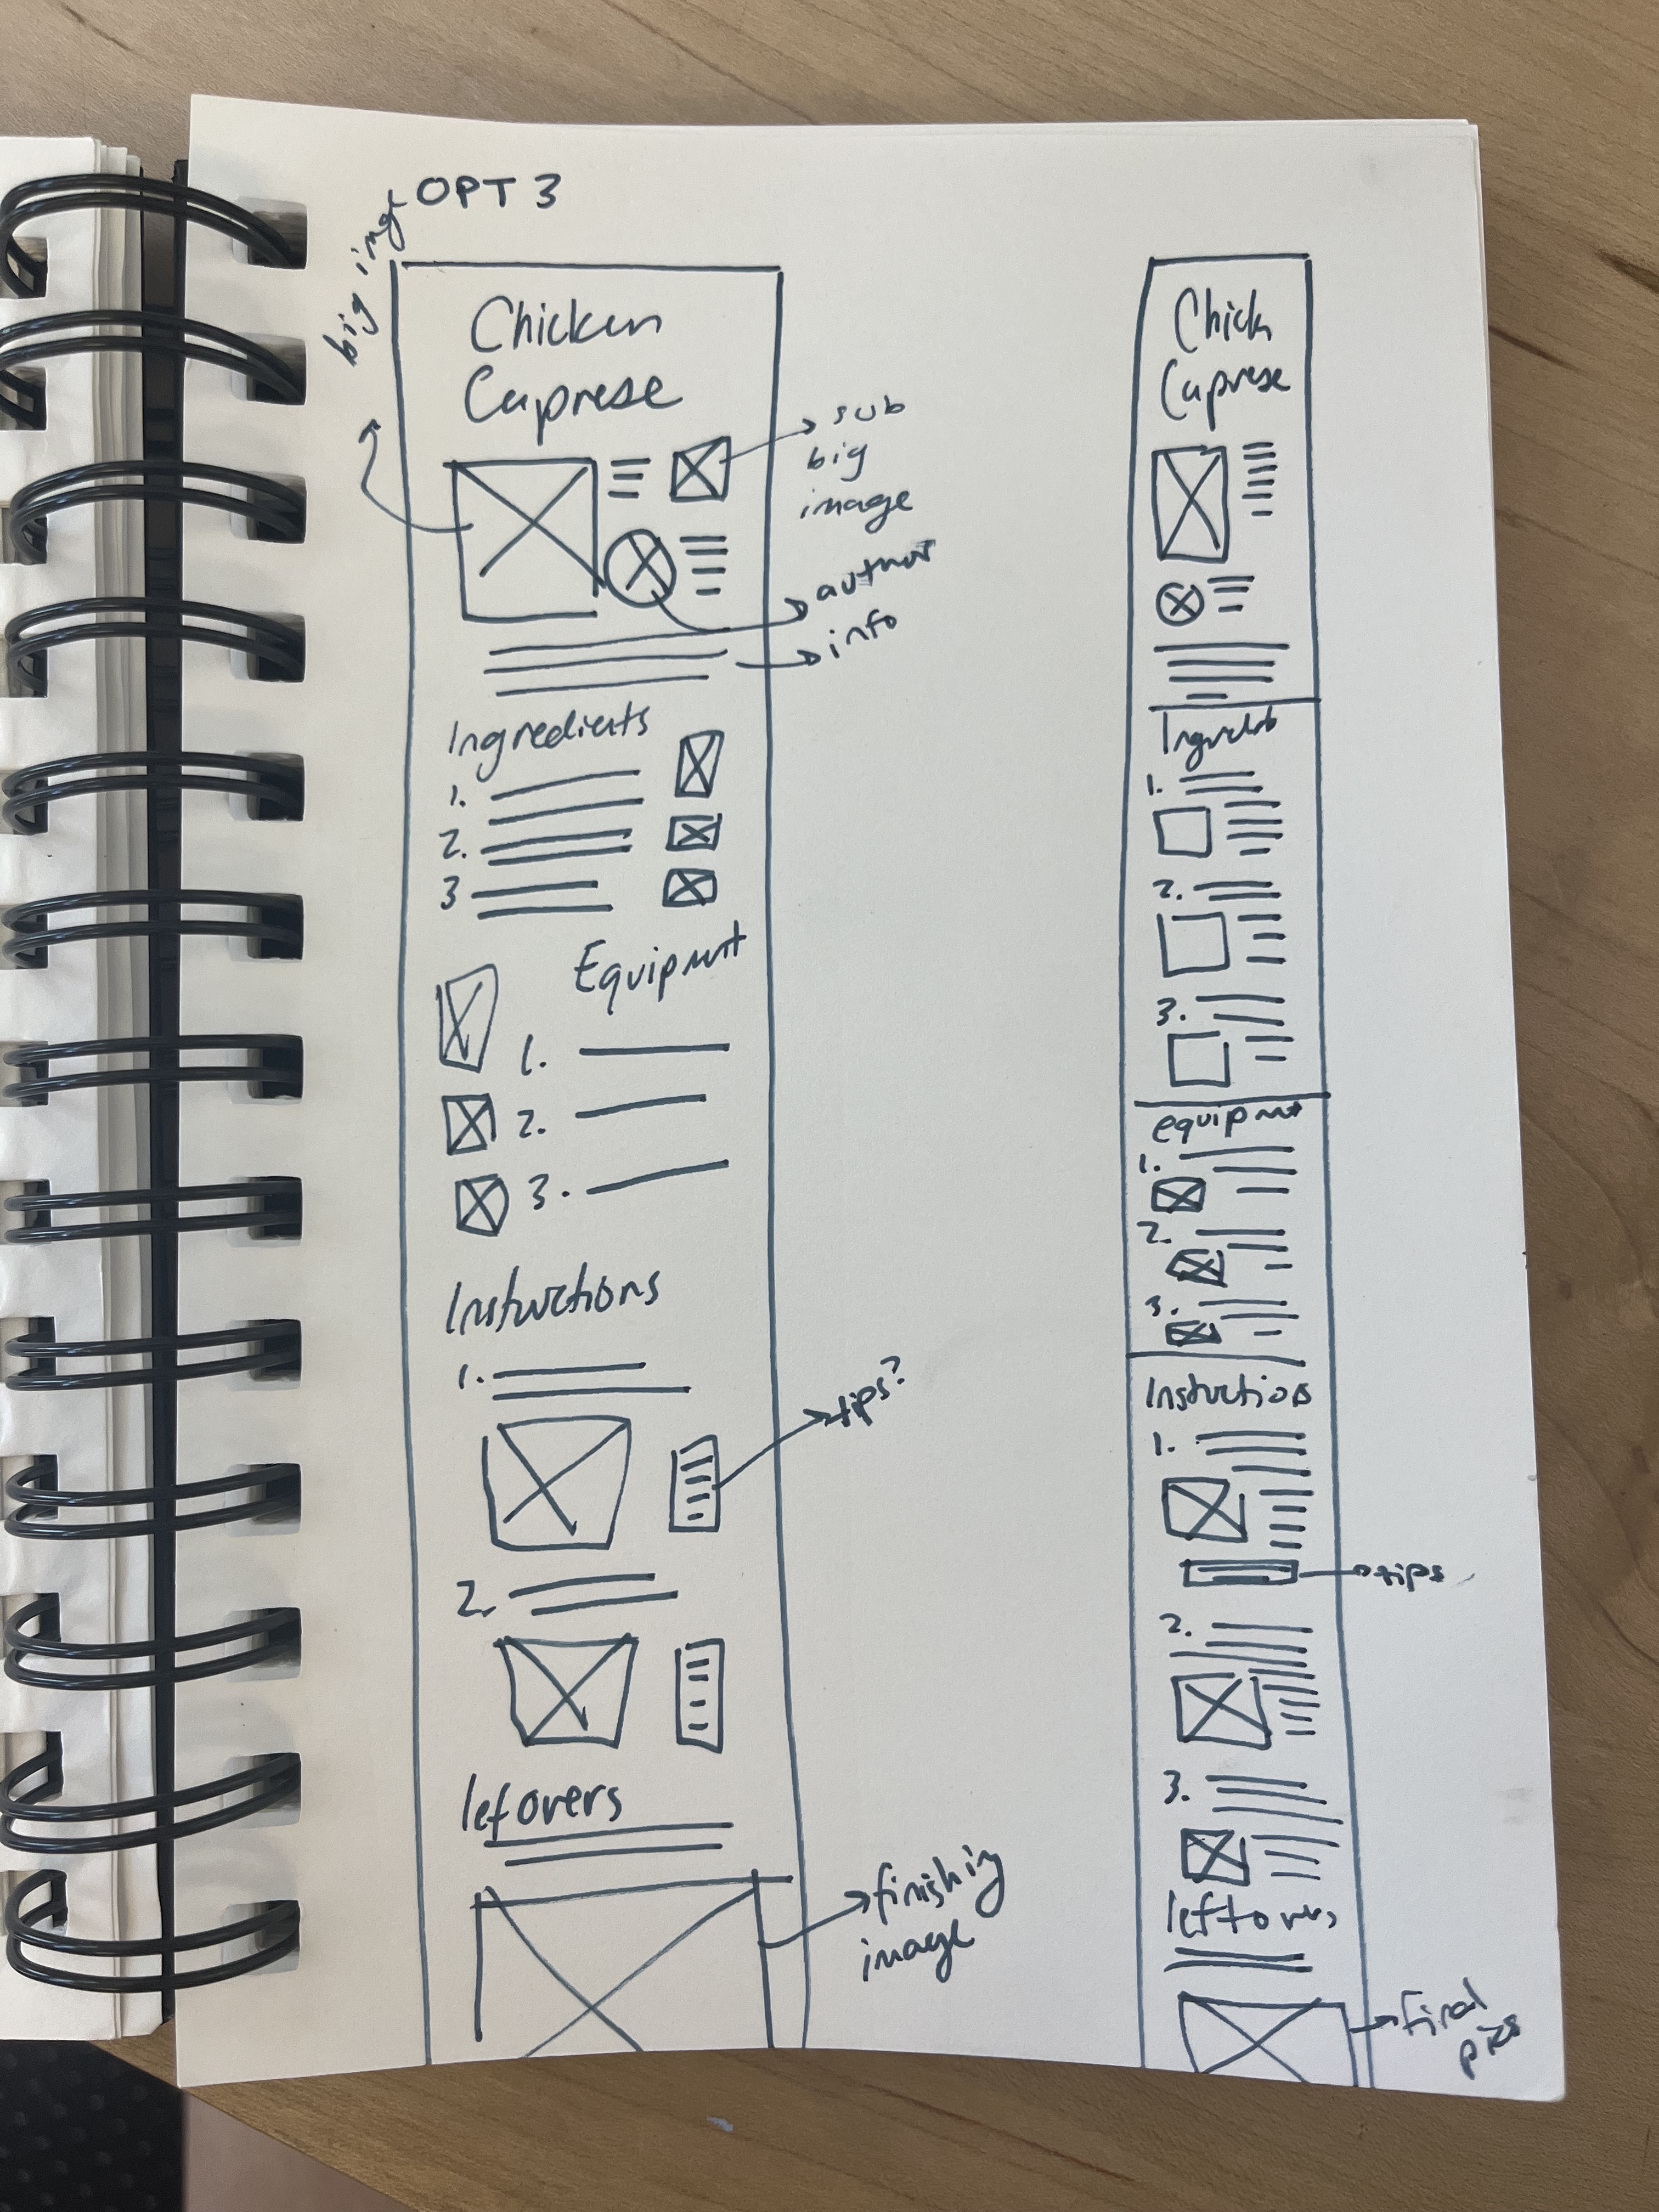 OPT 3
big imge
Chicken
Caprese
sub
big
image
author
info
Ingredients
1.
2.
3
Equipment
1.
2.
3.
Instuctions
1.
tips?
2.
lefovers
finishing
image
Chick
Caprese
1.
2.
3.
equipmnt
1.
2.
3.
Instuctions
1.
tips
2.
3.
leftovers
final
pics